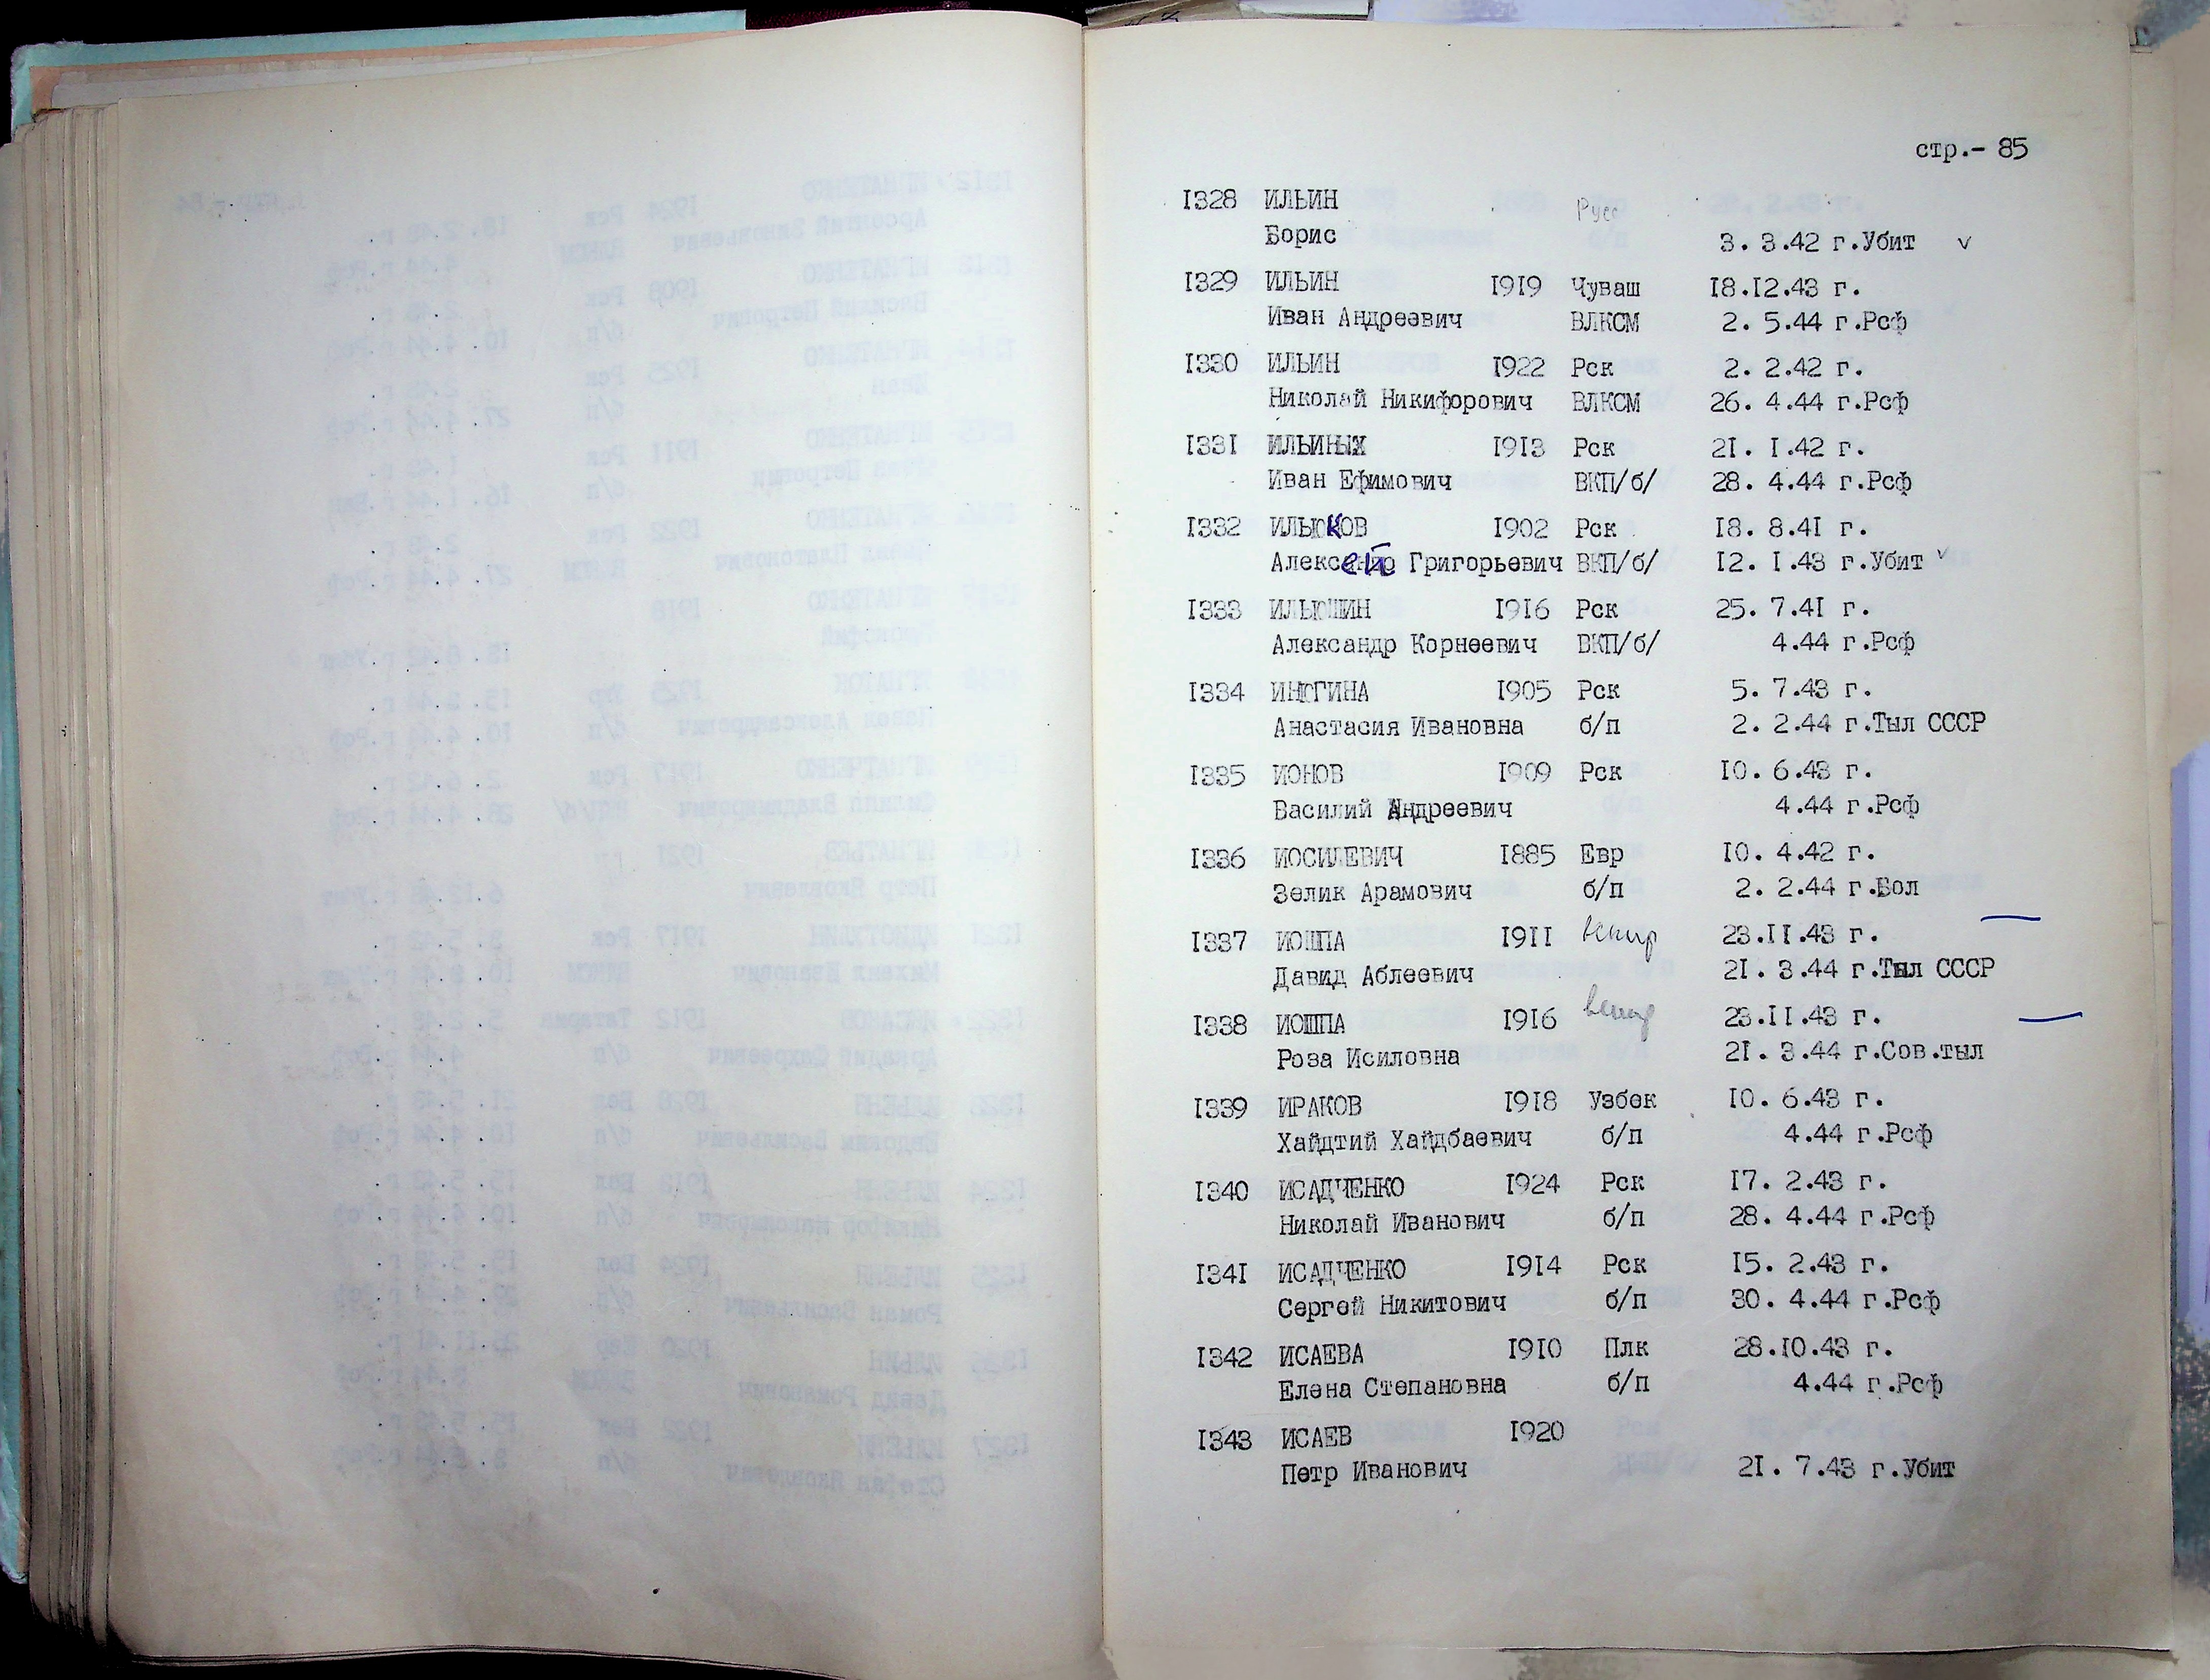 стр.- 85
1328 ИЛЬИН Русс
Борис 3. 3.42 г.Убит v
1329 ИЛЬИН 1919 Чуваш 18.12.43 г.
Иван Андреевич ВЛКСМ 2. 5.44 г.Рсф
1330 ИЛЬИН 1922 Рск 2. 2.42 г.
Николай Никифорович ВЛКСМ 26. 4.44 г.Рсф
1331 ИЛЬИНЫХ 1913 Рск 21. 1.42 г.
Иван Ефимович ВКП/б/ 28. 4.44 г.Рсф
1332 ИЛЬЮКОВ 1902 Рск 18. 8.41 г.
Алексей Григорьевич ВКП/б/ 12. 1.43 г.Убит v
1333 ИЛЬЮШИН 1916 Рск 25. 7.41 г.
Александр Корнеевич ВКП/б/ 4.44 г.Рсф
1334 ИНЮГИНА 1905 Рск 5. 7.43 г.
Анастасия Ивановна б/п 2. 2.44 г.Тыл СССР
1335 ИОНОВ 1909 Рск 10. 6.43 г.
Василий Андреевич 4.44 г.Рсф
1336 ИОСИЛЕВИЧ 1885 Евр 10. 4.42 г.
Зелик Арамович б/п 2. 2.44 г.Бол
1337 ИОШПА 1911 23.11.43 г.
Давид Аблеевич 21. 3.44 г.Тыл СССР
1338 ИОШПА 1916 23.11.43 г.
Роза Исиловна 21. 3.44 г.Сов.тыл
1339 ИРАКОВ 1918 Узбек 10. 6.43 г.
Хайдтий Хайдбаевич б/п 4.44 г.Рсф
1340 ИСАДЧЕНКО 1924 Рск 17. 2.43 г.
Николай Иванович б/п 28. 4.44 г.Рсф
1341 ИСАДЧЕНКО 1914 Рск 15. 2.43 г.
Сергей Никитович б/п 30. 4.44 г.Рсф
1342 ИСАЕВА 1910 Плк 28.10.43 г.
Елена Степановна б/п 4.44 г.Рсф
1343 ИСАЕВ 1920
Петр Иванович 21. 7.43 г.Убит